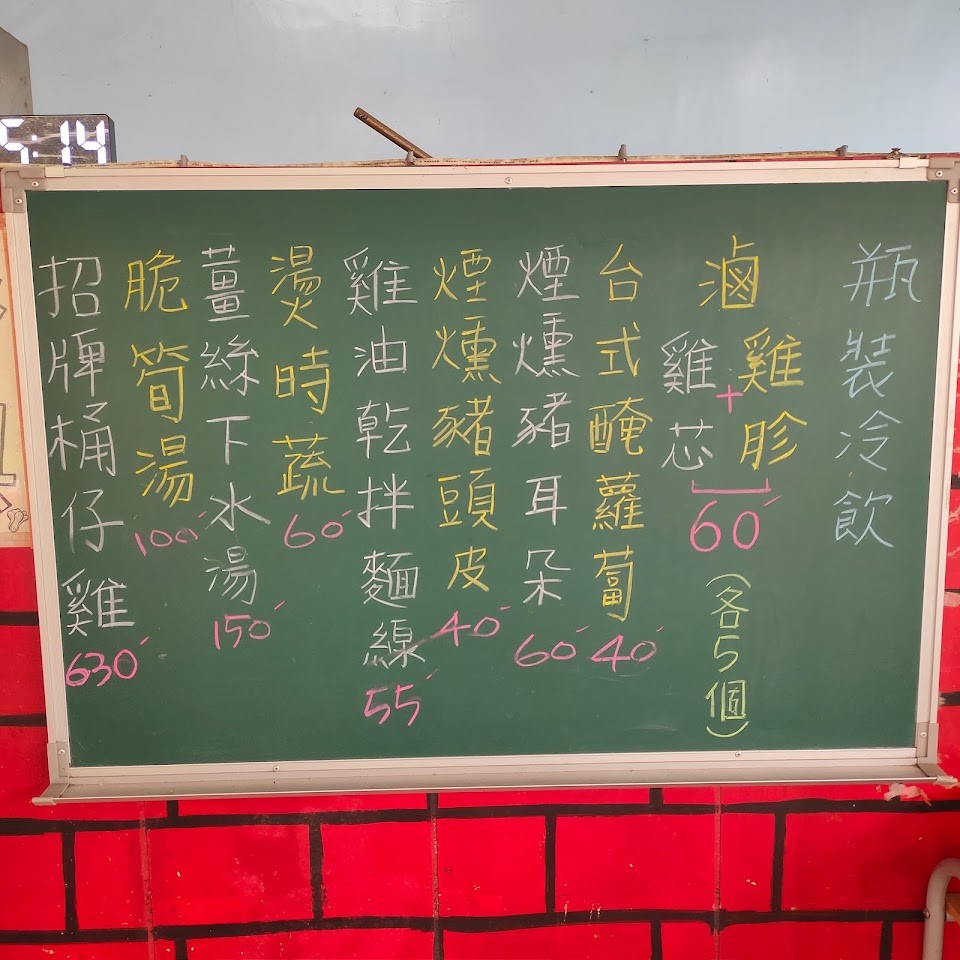 5:14
瓶裝冷飲
滷雞胗+雞芯60(各5個)
台式醃蘿蔔40
煙燻豬耳朵60
煙燻豬頭皮40
雞油乾拌麵線55
燙時蔬60
薑絲下水湯150
脆筍湯100
招牌桶仔雞630